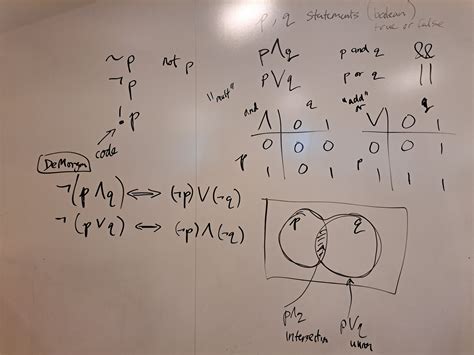 p, q statements (boolean)
true or false
~p not p
¬p
!p
code
p∧q p and q &&
p∨q p or q ||
"mult" and q
∧ 0 1
0 0 0
p 1 0 1
"add" or q
∨ 0 1
0 0 1
p 1 1 1
DeMorgan
¬(p∧q) ⟺ (¬p)∨(¬q)
¬(p∨q) ⟺ (¬p)∧(¬q)
p q
p∧q
intersection
p∨q
union